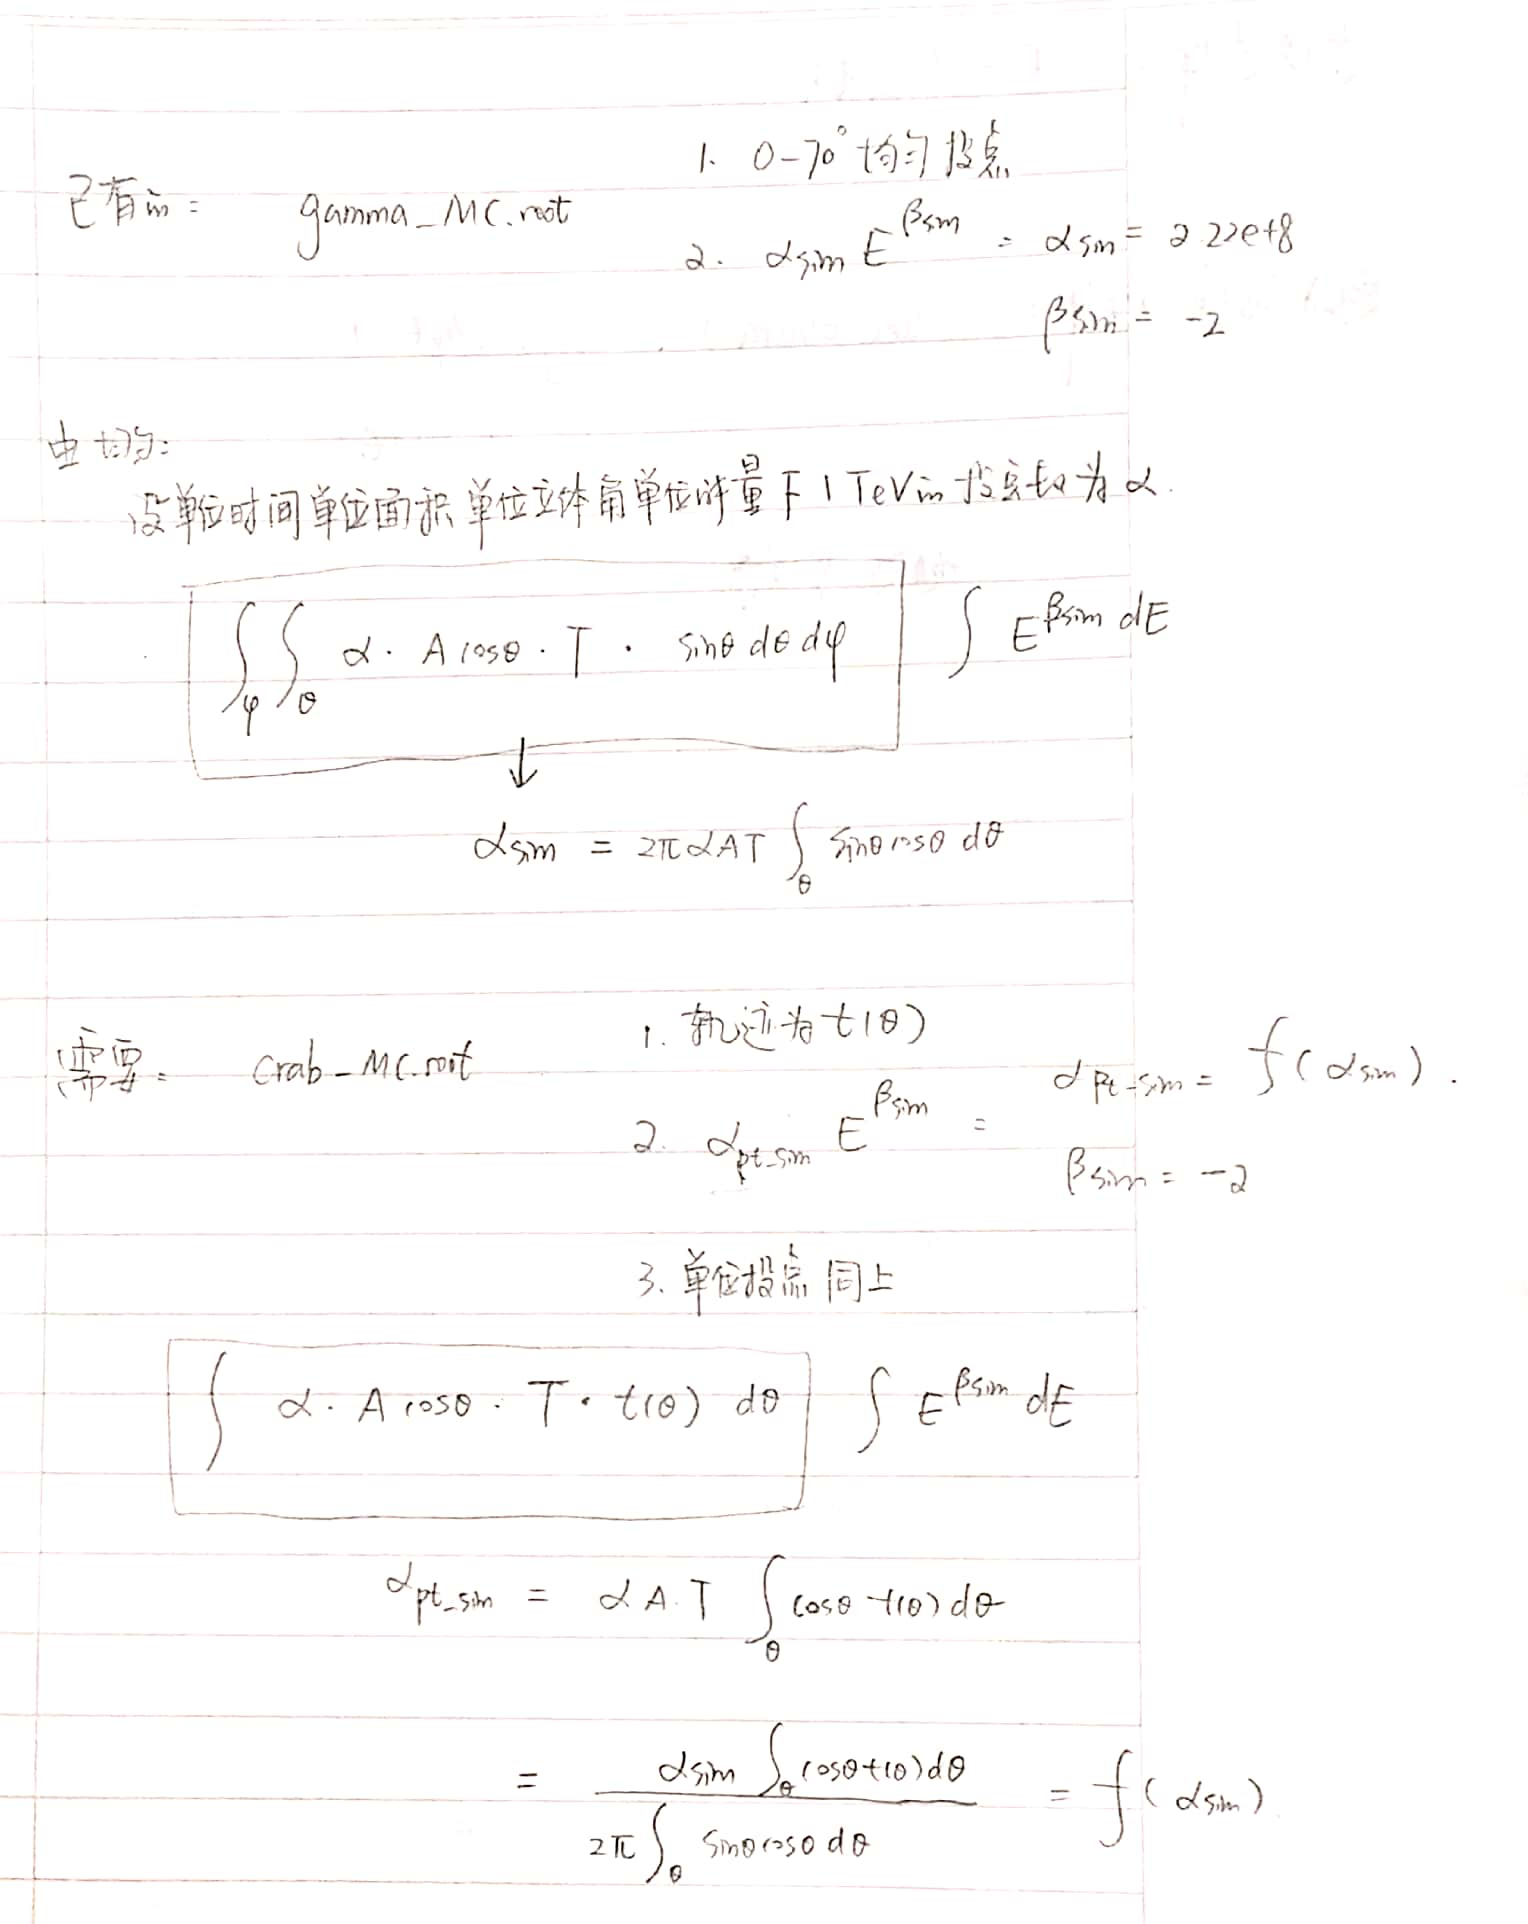 1. 0-70° 均匀投点
已有的: gamma_MC.root
2. α_sim E^{β_sim} : α_sim = 2.22e+8
β_sim = -2
由均匀:
设单位时间单位面积单位立体角单位能量下1TeV的投点数为α.
∫_φ ∫_θ α · A cosθ · T · sinθ dθ dφ ∫ E^{β_sim} dE
↓
α_sim = 2π α A T ∫_θ sinθ cosθ dθ
需要: crab_MC.root 1. 轨迹为 t(θ)
2. α_{pt_sim} E^{β_sim} : α_{pt_sim} = f(α_sim).
β_sim = -2
3. 单位投点同上
∫ α · A cosθ · T · t(θ) dθ ∫ E^{β_sim} dE
α_{pt_sim} = α A · T ∫_θ cosθ t(θ) dθ
= \frac{α_sim ∫_θ cosθ t(θ) dθ}{2π ∫_θ sinθ cosθ dθ} = f(α_sim)